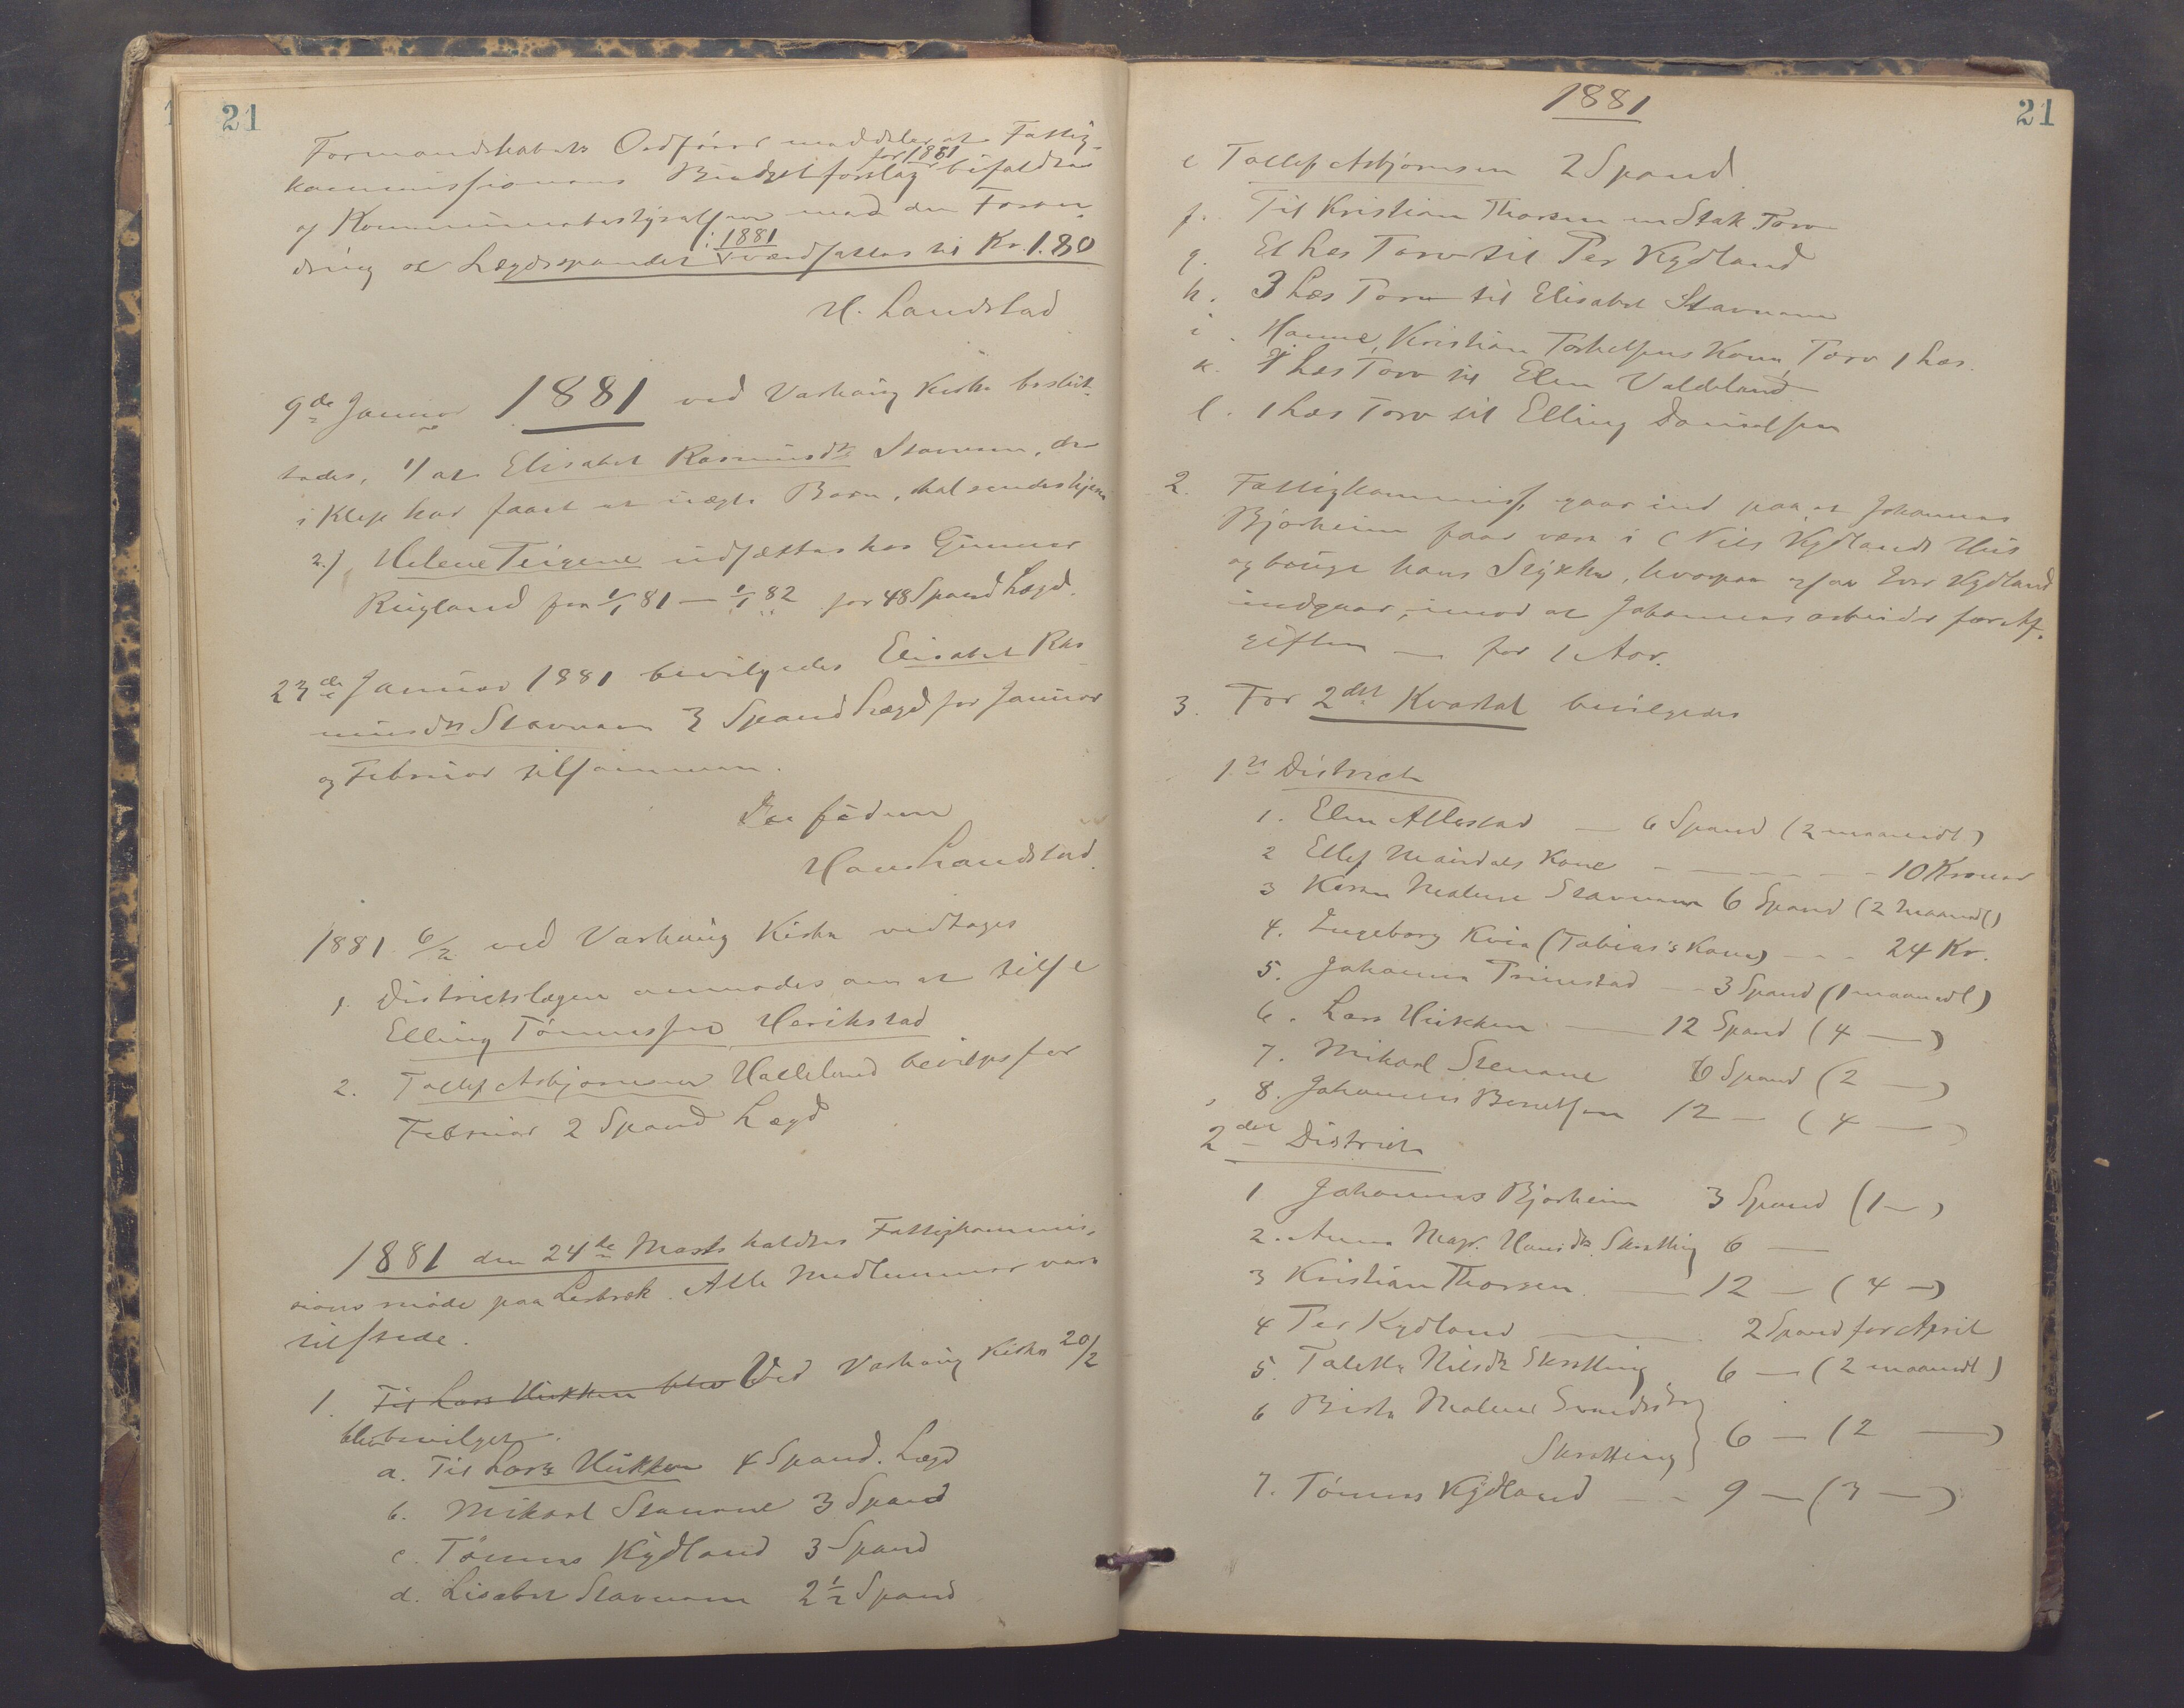 21
Formandskabets Ordfører meddeler at Fattig-
kommissionens Budgetforslag for 1881 bifaldtes
af Kommunebestyrelsen med den Foran-
dring at Lægdsspandet i 1881 værdsattes til Kr. 1.80
H. Landstad
9de Januar 1881 ved Varhaug Kirke beslut-
tedes, 1/ at Elisabet Rasmusdtr Stavnem, der
i Klep har faaet et uægte Barn, skal sendes hjem
2.) Helene Teigene udsættes hos Gunnar
Rugland fra 1/1 81 — 1/1 82 for 48 Spand Lægd.
23de Januar 1881 bevilgedes Elisabet Ras-
musdtr Stavnem 3 Spand Lægd for Januar
og Februar tilsammen.
Hans Landstad.
1881 6/2 ved Varhaug Kirke vedtages
1. Districtslægen anmodes om at tilse
Elling Tønnessen Herikstad
2. Tollef Asbjørnsen Halleland bevilges for
Februar 2 Spand Lægd
1881 den 24de Marts holdtes Fattigkommis-
sionsmøde paa Lerbrek. Alle Medlemmer vare
tilstede.
1. Til Lars Hukken blev Ved Varhaug Kirke 20/2
blev bevilget.
a. Til Lars Hukken 4 Spand. Lægd
b. Mikael Stenene 3 Spand
c. Tønnes Kydland 3 Spand
d. Lisabet Stavnem 2 1/2 Spand
1881
21
e Tollef Asbjørnsen 2 Spand
f. Til Kristian Thorsen en Stak Torv
g. Et Læs Torv til Per Kydland
h. 3 Læs Torv til Elisabet Stavnem
i. Hanne, Kristian Torkelsens Kone, Torv 1 Læs.
k. 1 Læs Torv til Elen Valdeland
l. 1 Læs Torv til Elling Danielsen
2. Fattigkommiss. gaar ind paa at Johannes
Bjorheim faar være i Nils Kydlands Hus
og bruge hans Stykke, hvorpaa ogsaa Iver Kydland
indgaar, imod at Johannes arbeider for Af-
giften — for 1 Aar.
3. For 2det Kvartal bevilgedes
1te District
1. Elen Allestad — 6 Spand (2 maanedl)
2 Ellef Maudals Kone — 10 Kroner
3 Karen Malene Stavnem 6 Spand (2 maanedl)
4. Ingeborg Kvia (Tobias's Kone) — 24 Kr.
5. Johanne Trinstad — 3 Spand (1 maanedl)
6. Lars Hukken — 12 Spand (4 —)
7. Mikael Stenene 6 Spand (2 —)
8. Johannes Berentsen 12 — (4 —)
2det District
1 Johannes Bjorheim 3 Spand (1 —)
2. Anna Magr. Hansdtr. Skretting 6 —
3 Kristian Thorsen — 12 — (4 —)
4 Per Kydland — 2 Spand for April
5. Taletta Nilsdtr Skretting 6 — (2 maanedl)
6 Berta Malene Svendsdtr
Skretting } 6 — (2 —)
7. Tønnes Kydland — 9 — (3 —)